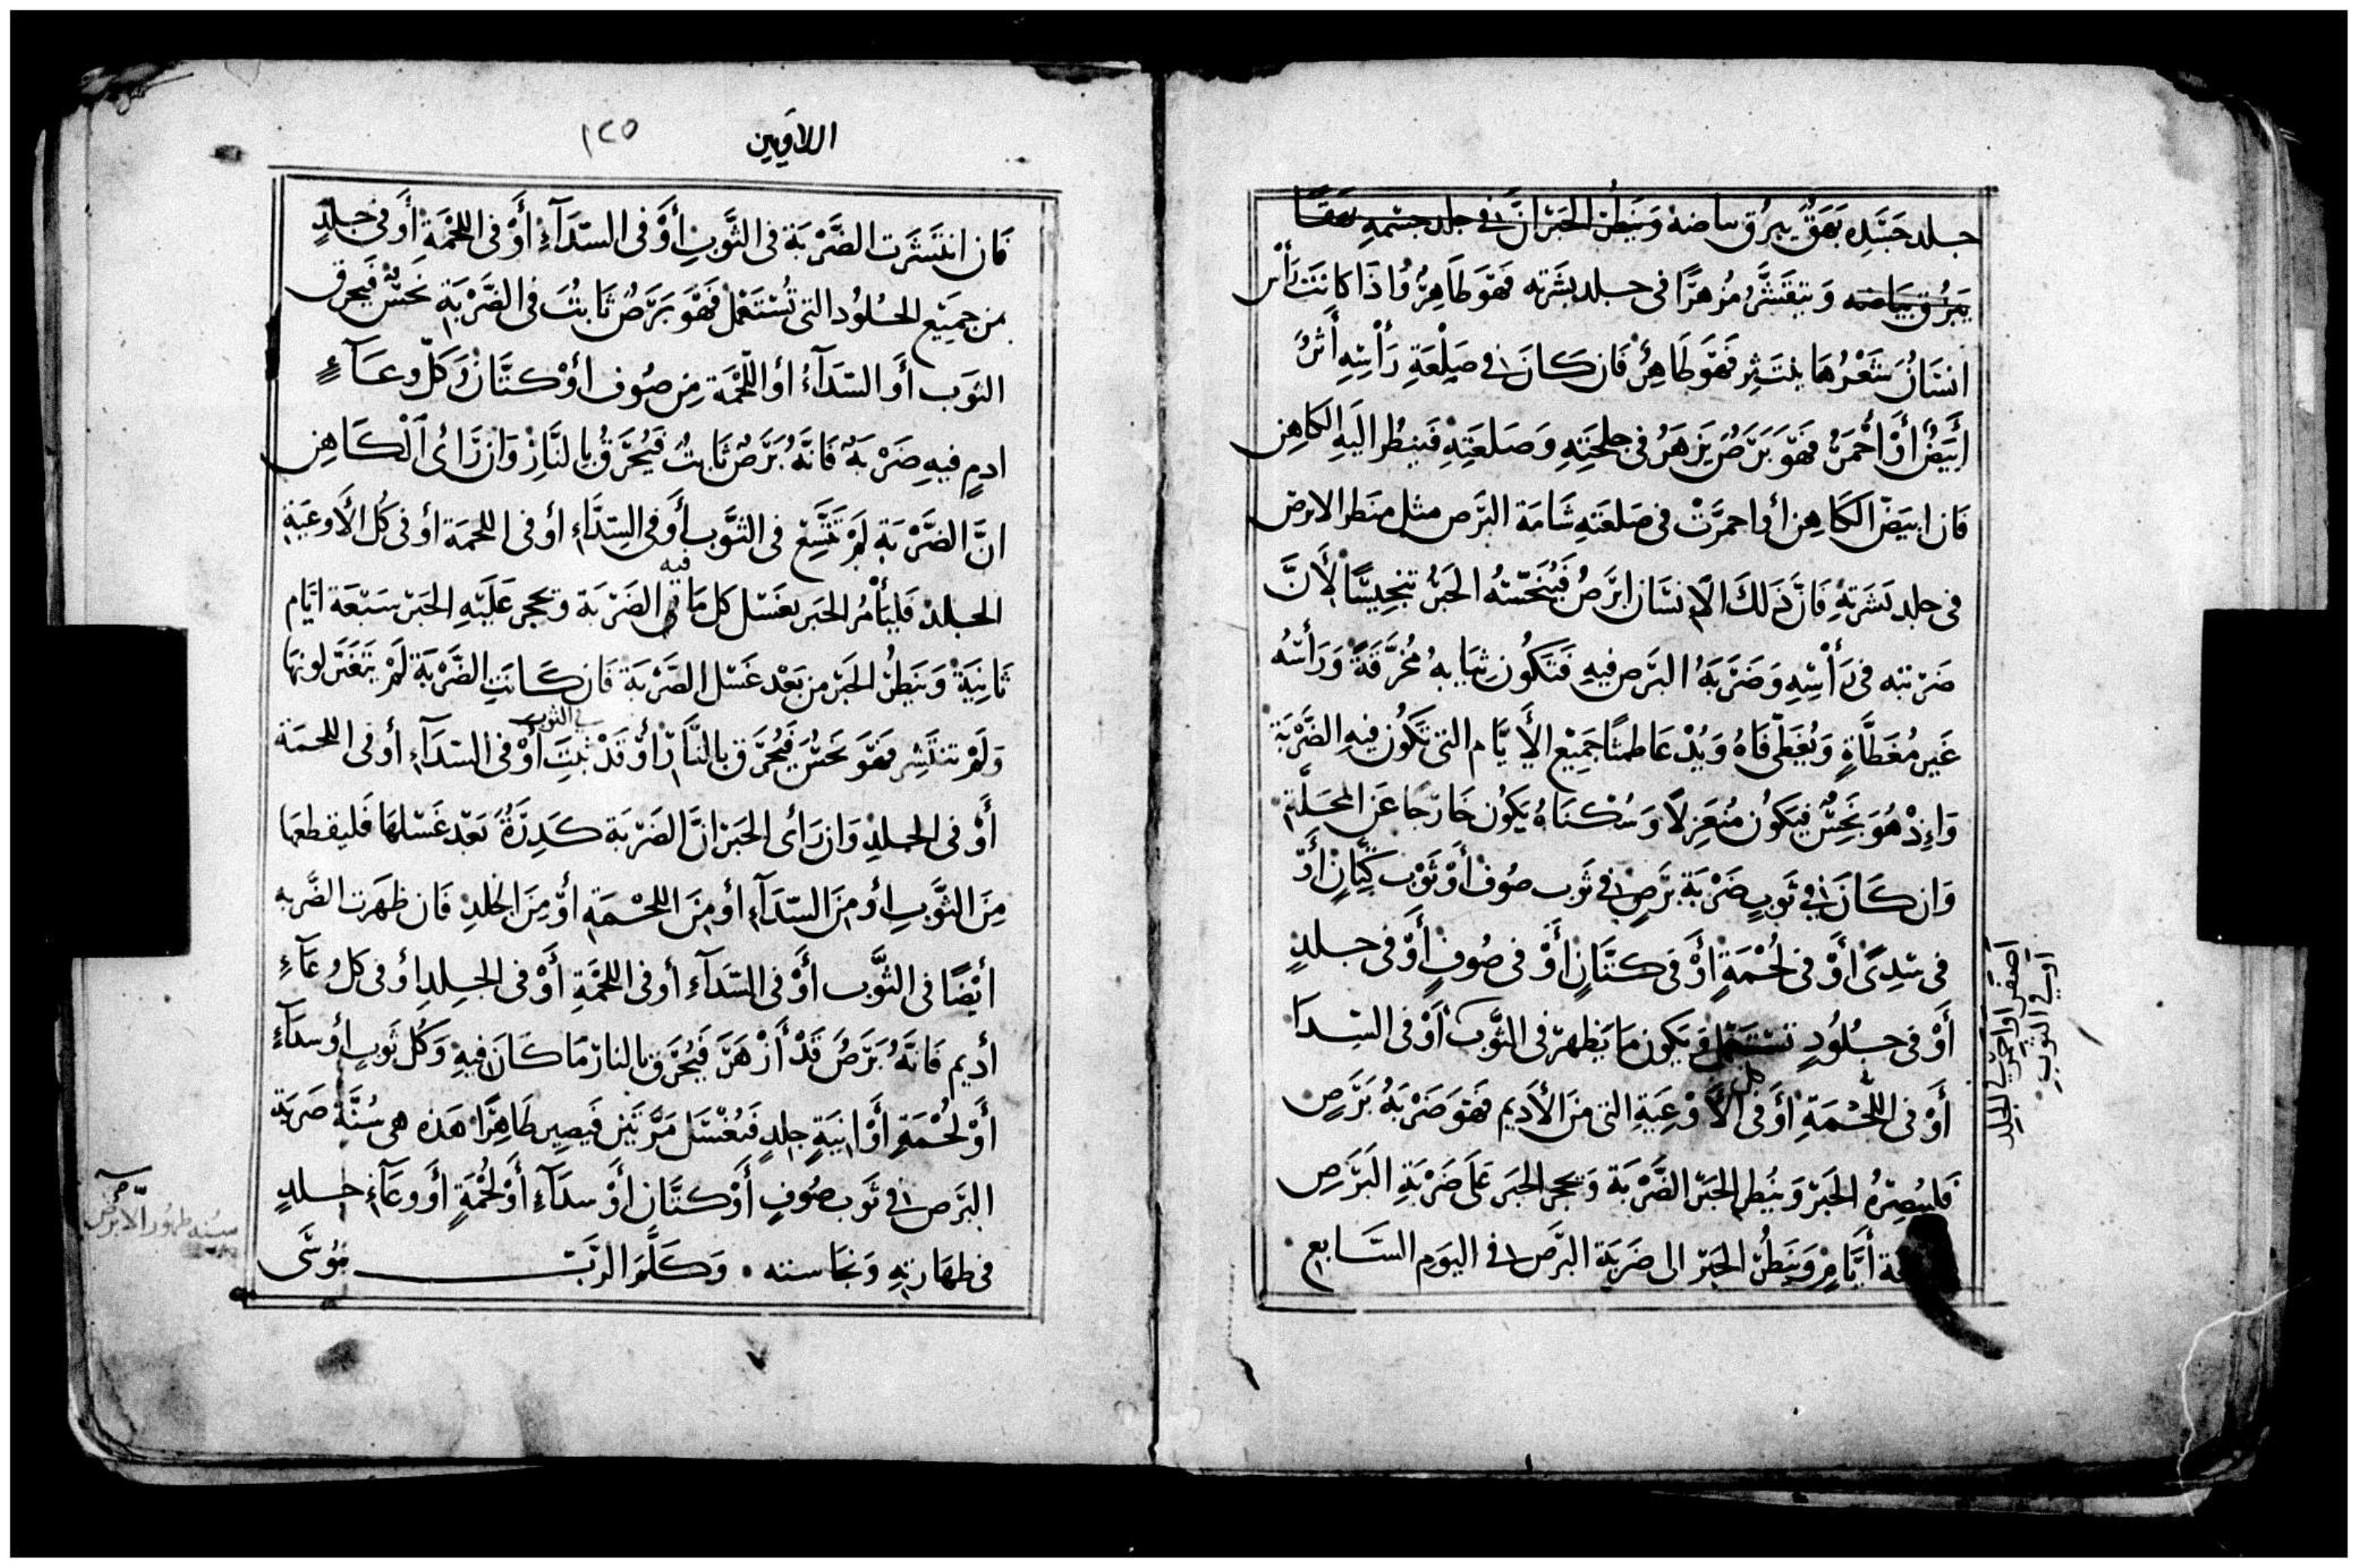 جلد جَسَدِه بَهَقٌ يبرُق بياضهُ وَيَنظُر الحَبْر انَّ في جلد جسْمِهِ بهَقًا
يَبرُق بيَاضه وَيتقَشَّرُ مُزهرًا في جلد بشَرَته فَهوَ طَاهِرٌ وَاذَا كانَت رَأْس
انسَانٌ شَعْرُهَا ينتَثِر فَهوَ طَاهِرٌ فَان كَانَ في صَلْعَةِ رَأسِهِ أَثرٌ
أبيَضٌ أوْ أَحْمَرٌ فَهوَ بَرَصٌ يَزهَرُ في جلحَتِهِ وَصَلعَتِهِ فَينظُر اليَهِ الكَاهِن
فَان ابيَضّ الكَاهِن أو احمرَّتْ في صَلعَتِهِ شَامَة البَرَص مثل منظر الابرص
في جلد بَشَرَتِهِ فَانَّ ذَلكَ الانسَان ابرَصٌ فَيُنَجّسْهُ الحَبْرُ تنجِيسًا لأَنَّ
ضَرْبَته في رَأْسِهِ وَضَرْبَةُ البَرَص فيهِ فَتكُون ثيَابهُ مُخَرَّقَةً وَرَأسُهُ
غَير مُغَطَّاةٍ وَيُغَطّي فَاهُ وَيُدْعَا طمثًا جَمِيْع الأَيَّام التي تكُون فيهِ الضَّرْبَة
وَإِذْ هُوَ نجسٌ فيَكُون مُنعَزِلًا وَسُكْنَاهُ يَكُون خَارجًا عَن المحَلَّةِ
وَان كَانَ في ثَوبٍ ضَرْبَة بَرَصٍ في ثَوب صُوف أَوْ ثَوْب كَتَّانٍ أَوْ
في سَدِىً أَوْ في لُحْمَةٍ أَوْ في كتَّانٍ أَوْ في صُوفٍ أَوْ في جلدٍ
أَوْ في جلُودٍ تستَعمَل وَيَكون مَا يَظهر في الثَّوب أَوْ في السِّدَا
أَوْ في اللُّحْمَةِ أَوَ في كل الأَوْعِيَةِ التي منَ الأديم فَهوَ ضَرْبَةُ بَرَصٍ
فَليُبصِرْهُ الحَبْر وَينظر الحَبْر الضَّرْبَة وَيحجر الحَبر عَلَى ضَرْبَةِ البَرَصِ
أَيَّامٍ وَيَنظُر الحَبْر الى ضَربَة البرَص في اليَوم السَّابع
أصفر أو أحمر في الجلد
أو في الثوب
اللاويين ١٢٥
فَان انتَشَرَت الضَّرْبَة في الثَّوبِ أَوْ في السَّدَآءِ أَوْ في اللحْمَةِ أَو في جلدٍ
من جَمِيْع الجُلُود التي تُسْتَعْمَل فَهُوَ بَرَصٌ ثَابتٌ في الضَّرْبَةِ نجسٌ فَيحرق
الثوَب أَو السّدَآءُ أو اللّحْمَة مِن صُوف أوْ كتَّان وَكلّ وعَآءٍ
ادمٍ فيهِ ضَرْبَةٌ فَانَّهُ بَرَصٌ ثَابتٌ فَيُحْرَقُ بِالنَّارِ وَان رَأى الْكَاهِن
انَّ الضَّرْبَةِ لَمْ تَتَّسِعْ في الثَّوب أَوْ في السّدَاءِ أو في اللحمَة أو في كُل الأوعيَةِ
الجلد فَليَأْمُر الحَبر بغَسْل كل مَا فيه الضَرْبَة ويحجر عَلَيْهِ الحَبر سَبْعَة ايَّام
ثَانِيَةْ وَيَنظُر الحَبْر من بَعْد غَسْل الضَّرْبَة فَان كَانَتِ الضَّرْبَة لَمْ يتَغَيَّر لونهَا
وَلَمْ تنتَشِر فَهوَ نجسٌ فَيُحْرَق بالنَّار أوْ قَدْ ثبتَت في الثوب أَوْ في السّدَآءِ أو في اللحمَة
أَوْ في الجلدِ وَان رَأى الحَبْر انَّ الضَرْبَة كَدِرَةٌ بَعْد غَسْلهَا فَليقطعهَا
مِنَ الثَّوبِ أو مِنَ السّدَآءِ أو مِنَ اللحْمَةِ أوْ مِنَ الجْلدِ فَان ظهَرَت الضَّربه
أيْضًا في الثَّوب أَوْ في السّدَآءِ أو في اللحْمَةِ أَوْ في الجِلدِ أو في كل وعَآءِ
أديم فَانَّهُ بَرَصٌ قَدْ أَزْهَرَ فَيُحْرَق بالنار مَا كَانَ فيهِ وَكُل ثَوبٍ أو سدَآءٍ
أَوْ لحُمْةٍ أَوْ انيَةٍ جلدٍ فَيُغْسَل مَرَّتَيْن فَيَصِير طَاهِرًا هَذه هي سُنَّة ضَربَة
البَرَص في ثَوب صُوفٍ أَوْ كتَّانٍ أَوْ سدَآءٍ أَوْ لُحْمَةٍ أَوْ وعَآءِ جلدٍ
في طهَارَتِهِ وَنجَاسته ٠ وَكَلَّمَ الرَّبّ مُوسَى
سُنة طهور الأبرص